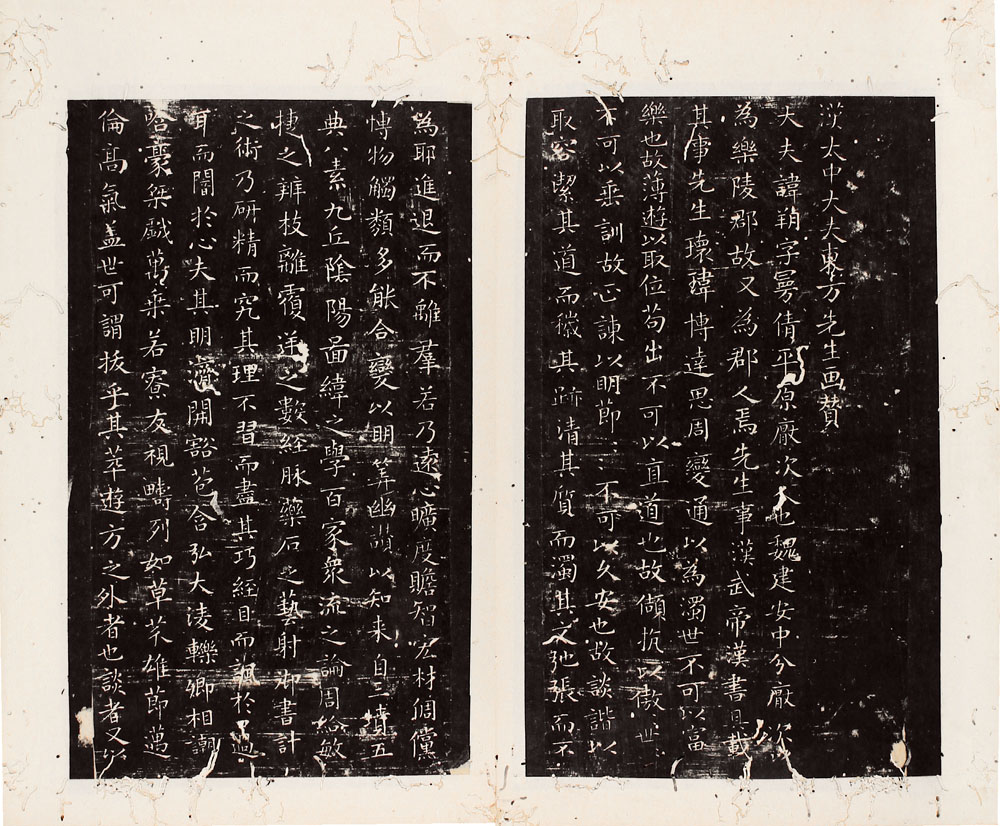 漢太中大夫東方先生画賛
大夫諱朔字曼倩平原厭次人也魏建安中分厭次以
為樂陵郡故又為郡人焉先生事漢武帝漢書具載
其事先生瓌瑋博達思周變通以為濁世不可以富
樂也故薄遊以取位苟出不可以直道也故傾抗以傲世
不可以垂訓故正諫以明節不可以久安也故談諧以
取容潔其道而穢其跡清其質而濁其文弛張而不
為耶進退而不離羣若乃遠心曠度贍智宏材倜儻
博物觸類多能合變以明筭幽讃以知来自三墳五
典八素九丘陰陽啚緯之學百家衆流之論周給敏
捷之辨枝離覆逆之數經脉藥石之藝射御書計
之術乃研精而究其理不習而盡其巧經目而諷於口過
耳而闇於心夫其明濟開豁苞含弘大淩轢卿相謿
哈豪桀戲萬乗若寮友視疇列如草芥雄節邁
倫高氣盖世可謂拔乎其萃遊方之外者也談者又以